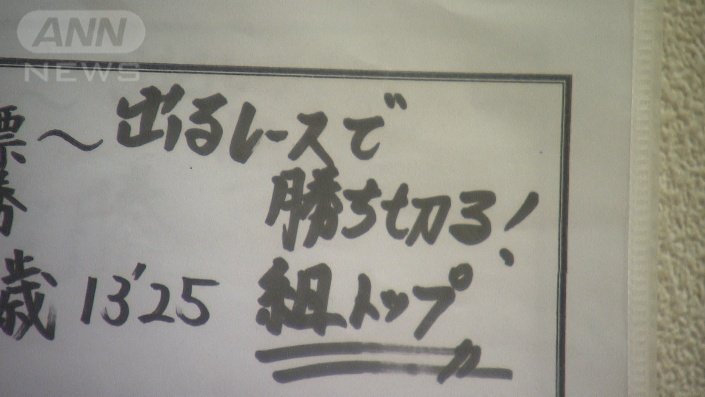 ANN
NEWS
標～出るレースで
勝ち切る！
歳 13'25 組トップ